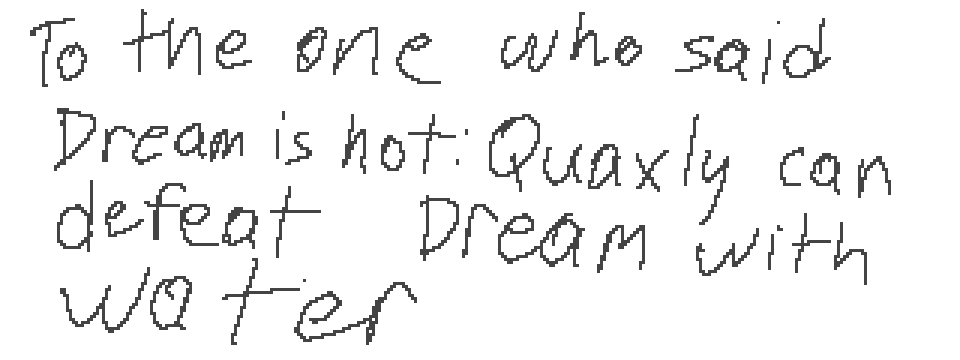 To the one who said
Dream is hot: Quaxly can
defeat Dream with
water